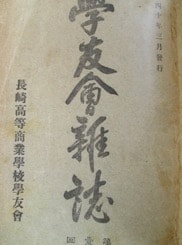 四十年三月發行
學友會雜誌
長崎高等商業學校學友會